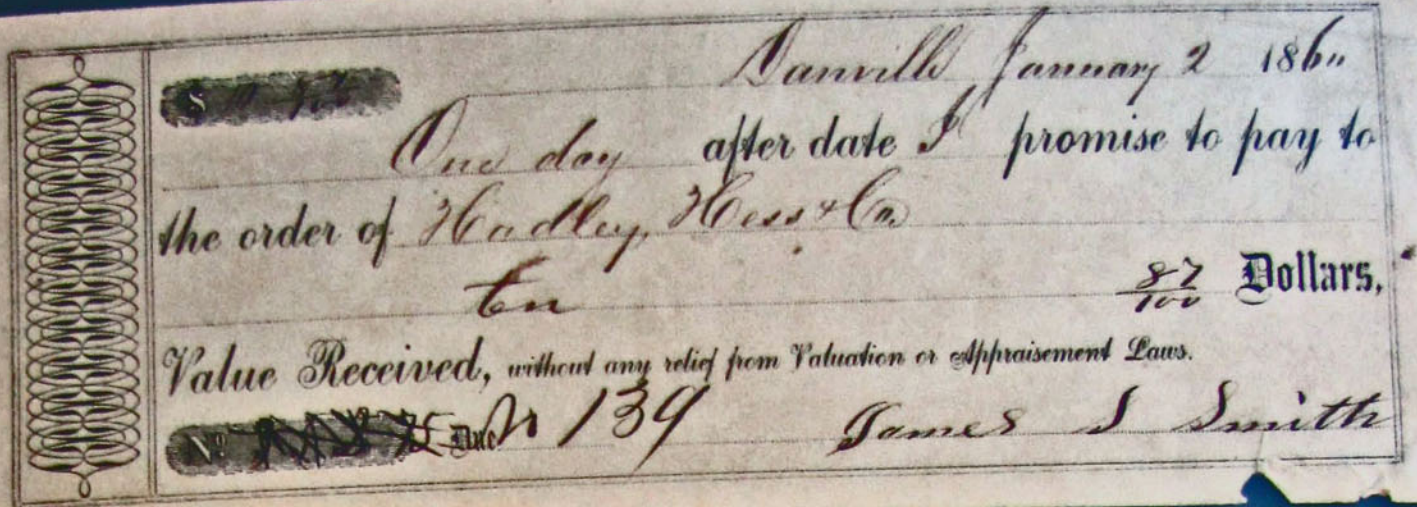 Danville January 2 1860
$ 10 87/100
One day after date I promise to pay to
the order of Hadley, Hess & Co
ten 87/100 Dollars,
Value Received, without any relief from Valuation or Appraisement Laws.
No Due No 139 James S Smith